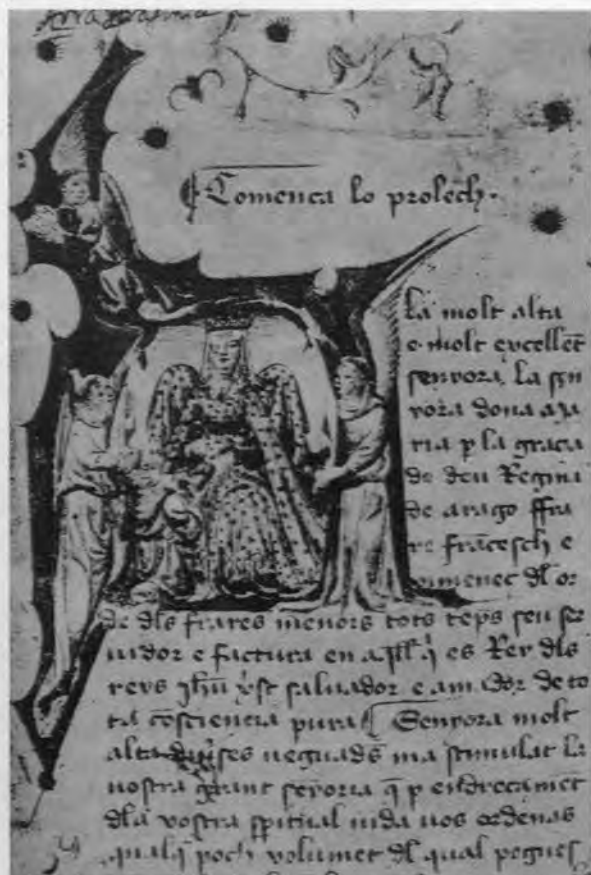 ¶ Comenca lo prolech.
la molt alta
e molt excellēt
senyora, la sen
yora dona ma
ria p la gracia
de deu Regina
de arago ffra
re francesch e
ximenec dl or
de dls frares menors tots tēps seu ser
uidor e factura en aqll q es Rey dls
reys ihū xst saluador e amador de to
ta cōsciencia pura ¶ Senyora molt
alta diuses ueguads ma stimulat la
uostra grant senyoria q p endrecamēt
dla vostra spitual uida uos ordenas
qualq poch volumet dl qual pogues